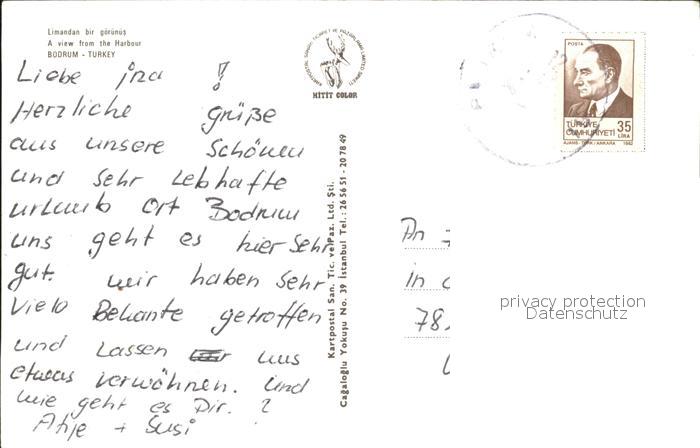 Limandan bir görünüş
A view from the Harbour
BODRUM - TURKEY
Liebe ina !
Herzliche grüße
aus unsere schönen
und sehr Lebhafte
urlaub ort Bodrum
uns geht es hier sehr
gut. wir haben sehr
viele Bekante getroffen
und Lassen uns
etwas verwöhnen. und
wie geht es Dir. ?
+ Susi
KARTPOSTAL SANAYİ TİCARET VE PAZARLAMA LİMİTED ŞİRKETİ
HİTİT COLOR
Kartpostal San. Tic. ve Paz. Ltd. Şti.
Cağaloğlu Yokuşu No. 39 İstanbul Tel.: 26 56 51 - 20 78 49
POSTA
TÜRKİYE
CUMHURİYETİ
35
LİRA
AJANS-TÜRK/ANKARA 1982
An
in
78
privacy protection
Datenschutz